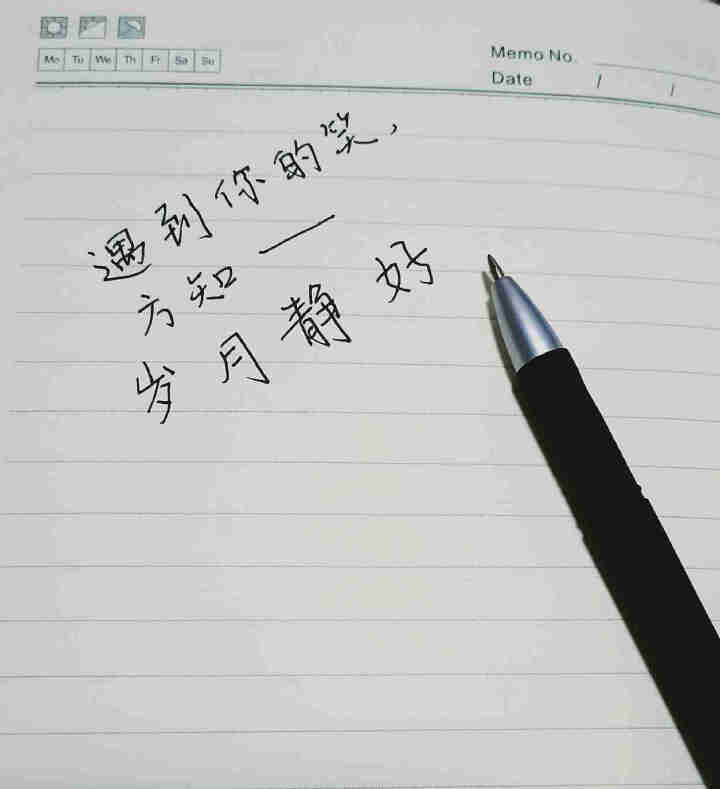 Mo Tu We Th Fr Sa Su
Memo No.
Date / /
遇到你的笑,
方知——
岁月静好